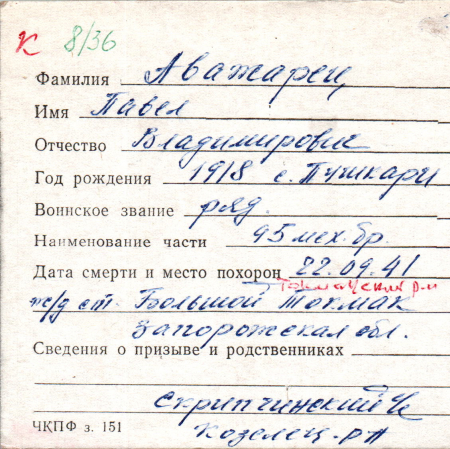 К 8/36
Фамилия Аважарец
Имя Павел
Отчество Владимирович
Год рождения 1918 с. Пушкари
Воинское звание ряд.
Наименование части 95 мех. бр.
Дата смерти и место похорон 22.09.41
Токмакский р-н
ж/д ст. Большой Токмак
Запорожская обл.
Сведения о призыве и родственниках
Скрипчинский
Козелец. р-н
ЧКПФ з. 151